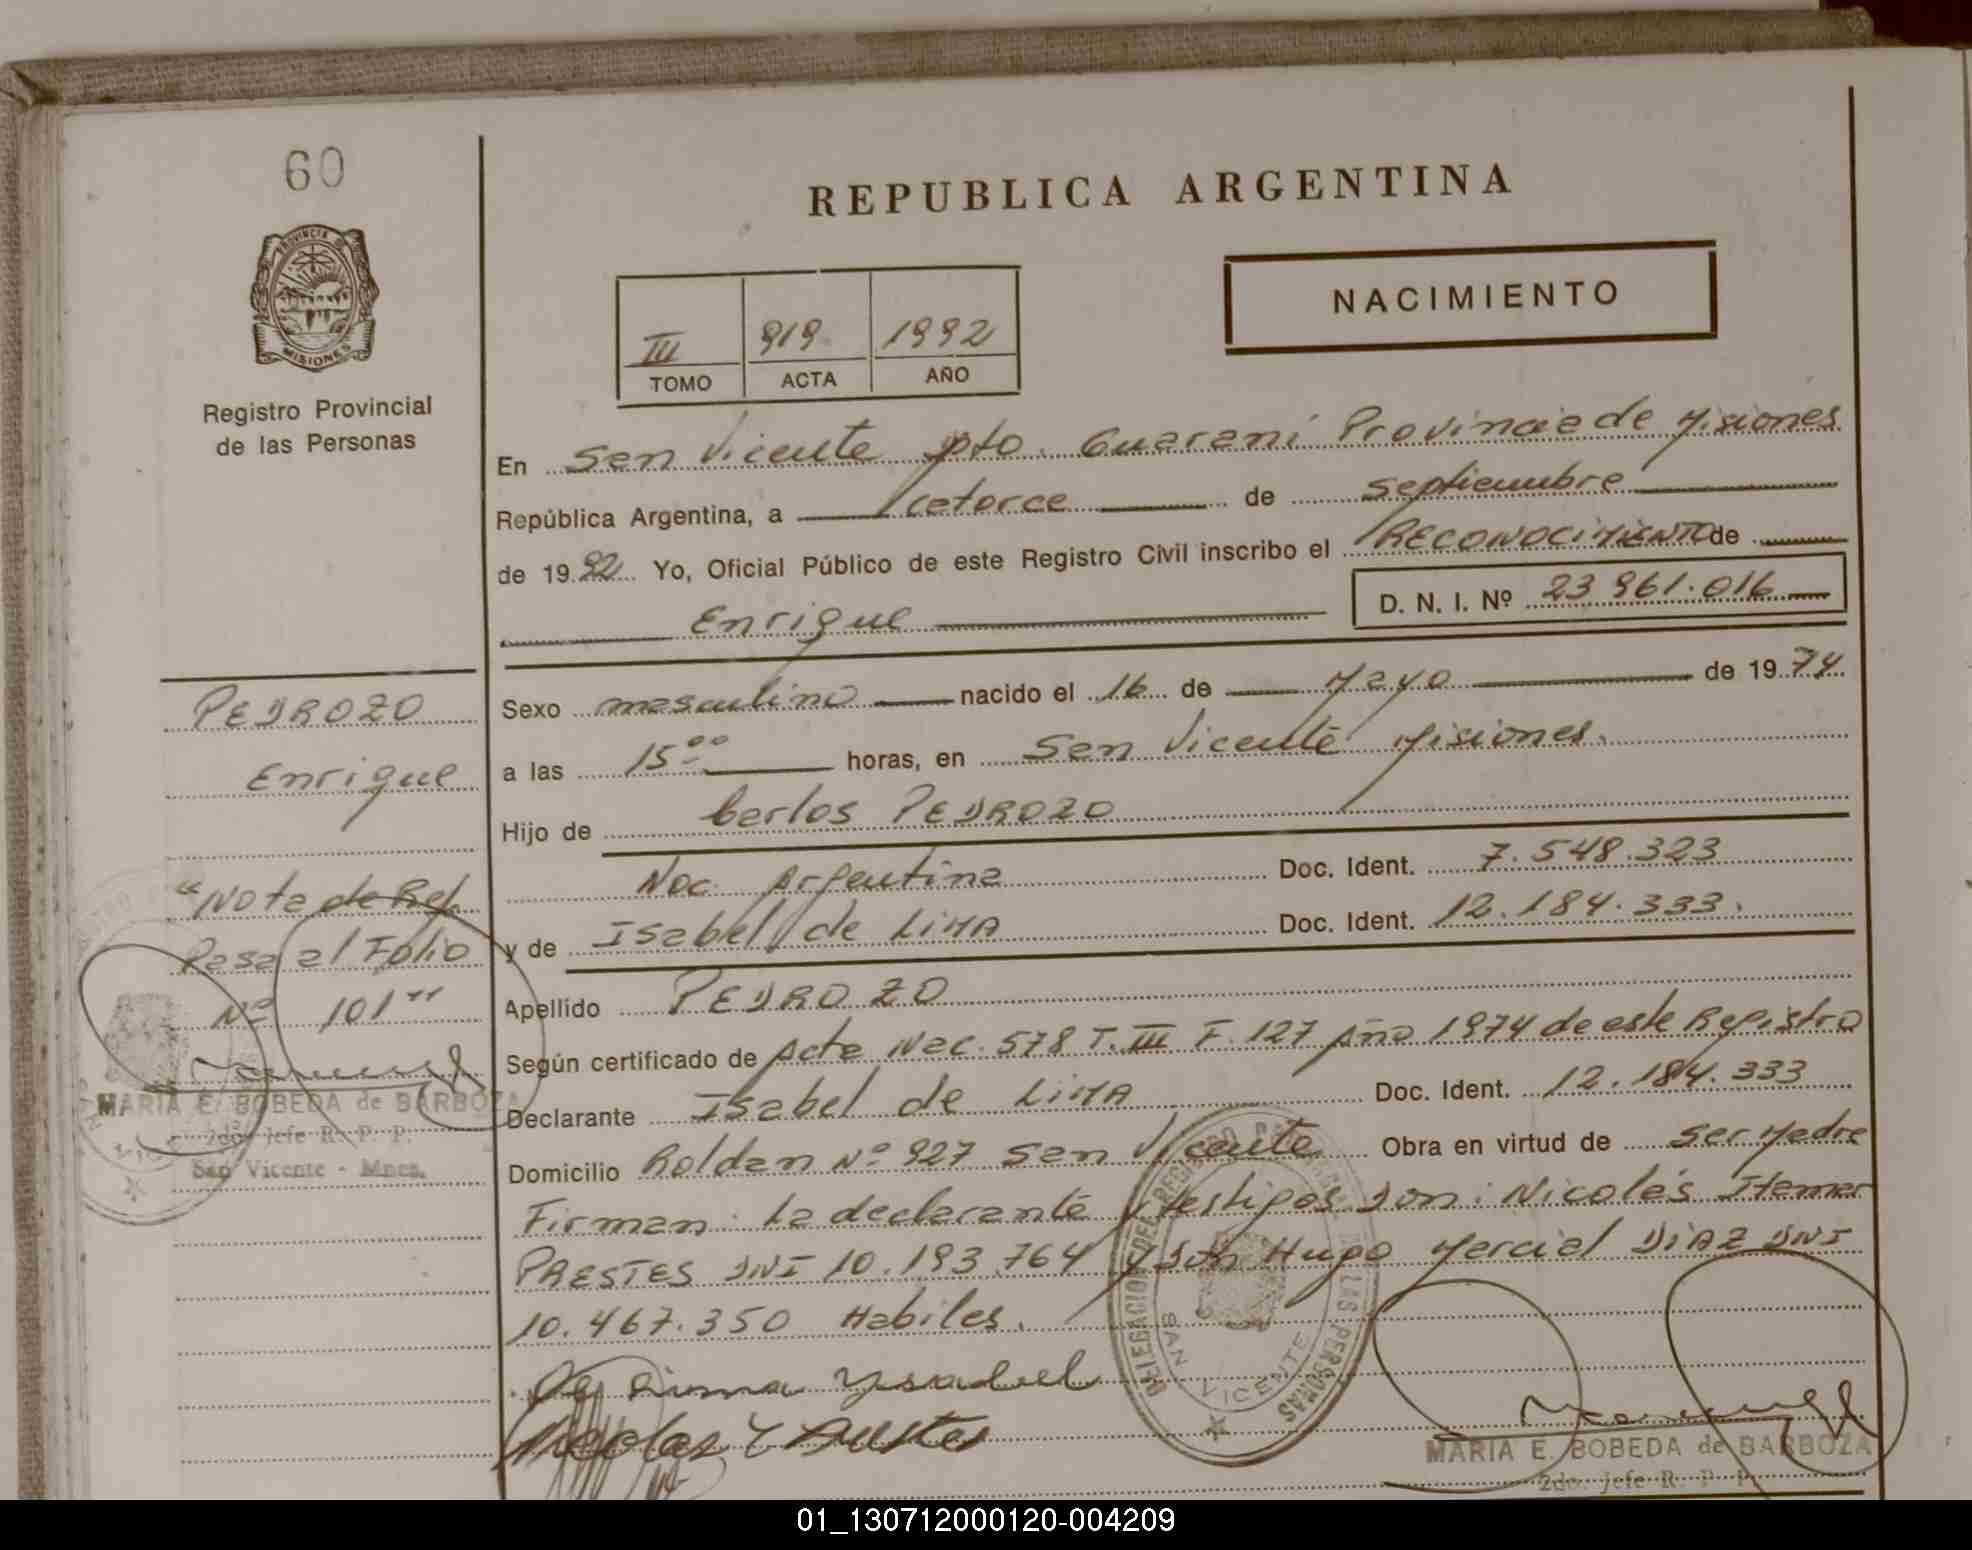 60
PROVINCIA DE
MISIONES
Registro Provincial
de las Personas
REPUBLICA ARGENTINA
NACIMIENTO
III 919 1992
TOMO ACTA AÑO
En San Vicente Dto. Guaraní Provincia de Misiones
República Argentina, a catorce de septiembre
de 1992 Yo, Oficial Público de este Registro Civil inscribo el RECONOCIMIENTO de
Enrique D. N. I. Nº 23 961.016
Sexo masculino nacido el 16 de Mayo de 1974
a las 15⁰⁰ horas, en San Vicente Misiones.
Hijo de Carlos PEDROZO
Nac. Argentina Doc. Ident. 7.548.323
y de Isabel de LIMA Doc. Ident. 12.184.333.
Apellido PEDROZO
Según certificado de Acta Nac. 578 T. III F. 127 Año 1974 de este Registro
Declarante Isabel de LIMA Doc. Ident. 12.184.333
Domicilio Roldan Nº 927 San Vicente Obra en virtud de ser Madre
Firman: La declarante y testigos Don: Nicolás Itamar
PAESTES DNI 10.193.764 y Don Hugo Marcial DIAZ DNI
10.467.350 Habiles.
De Lima Ysabel
PEDROZO
Enrique
"Nota de Ref.
Pasa al Folio
Nº 101"
MARIA E. BOBEDA de BARBOZA
2do. Jefe R. P. P.
San Vicente - Mnes.
DELEGACION DEL REGISTRO PROVINCIAL DE LAS PERSONAS
SAN VICENTE
MARIA E. BOBEDA de BARBOZA
2do. Jefe R. P. P.
01_130712000120-004209